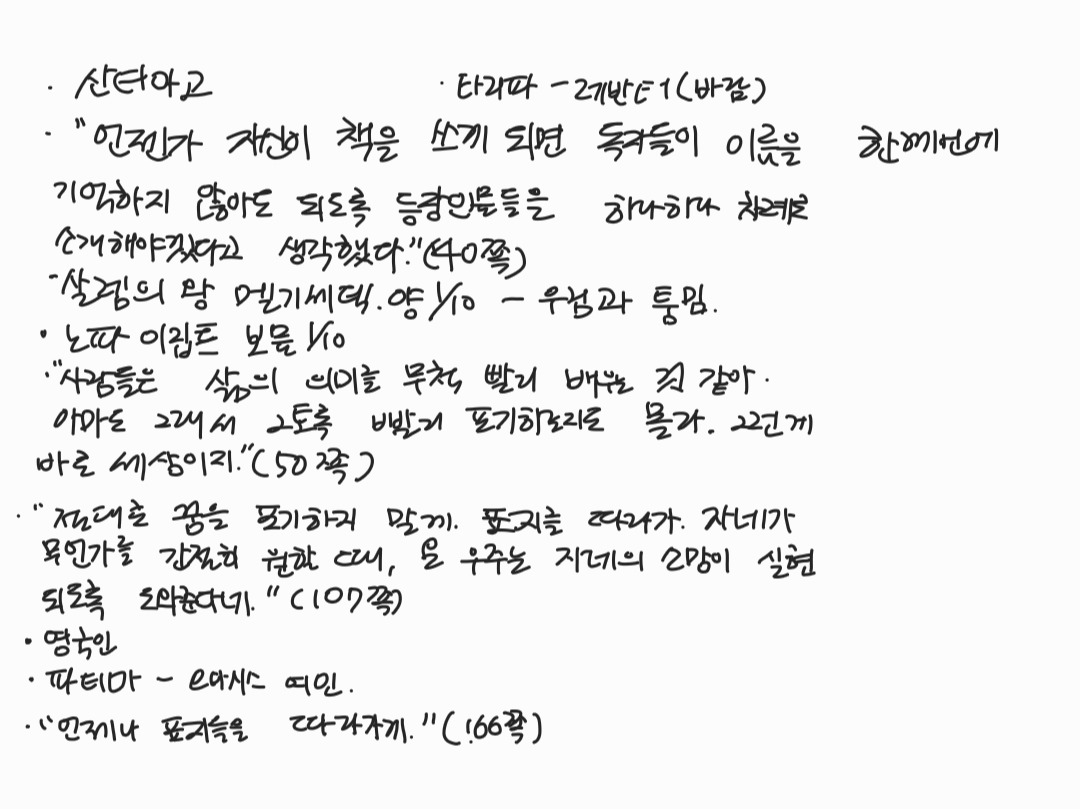 · 산티아고 · 타리파 - 레반터(바람)
· "언젠가 자신이 책을 쓰게 되면 독자들이 이름을 한꺼번에
기억하지 않아도 되도록 등장인물들을 하나하나 차례로
소개해야겠다고 생각했다."(40쪽)
- 살렘의 왕 멜기세덱. 양 1/10 - 우림과 툼밈.
· 노파 이집트 보물 1/10
· "사람들은 삶의 의미를 무척 빨리 배우는 것 같아.
아마도 그래서 그토록 빨리 포기하는지도 몰라. 그런게
바로 세상이지."(50쪽)
· "절대로 꿈을 포기하지 말게. 표지를 따라가. 자네가
무언가를 간절히 원할 때, 온 우주는 자네의 소망이 실현
되도록 도와준다네." (107쪽)
· 영국인
· 파티마 - 오아시스 여인.
· "언제나 표지들을 따라가게." (166쪽)